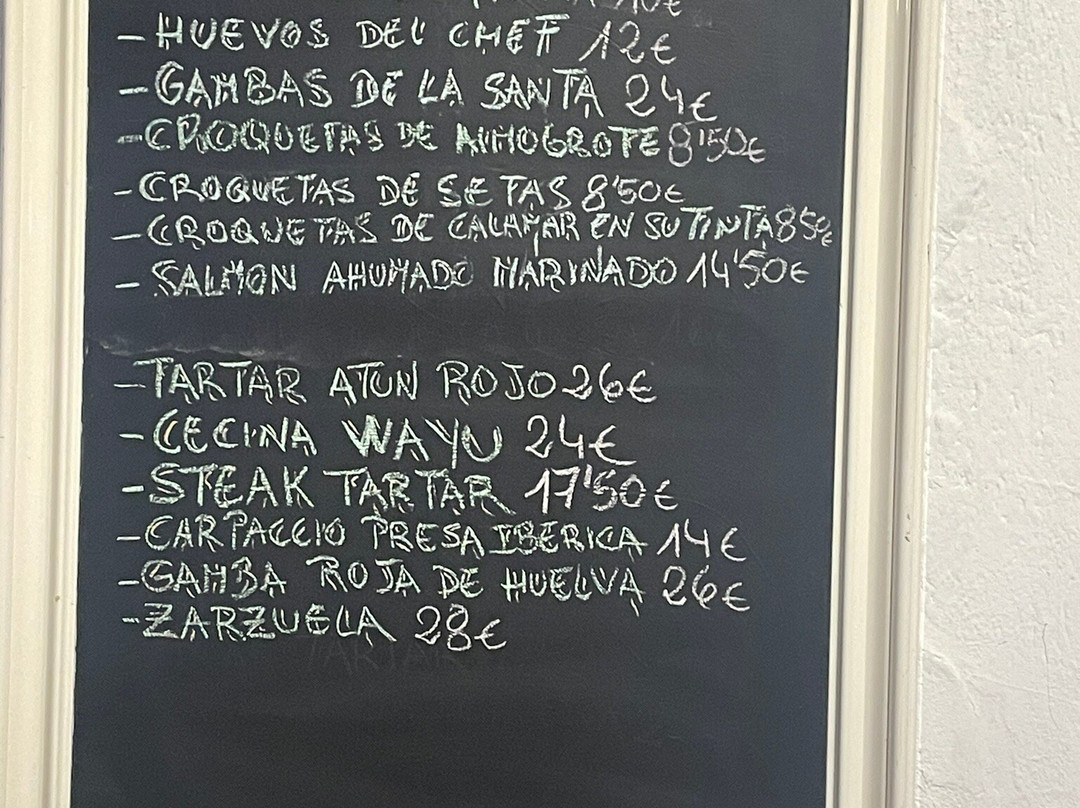 - HUEVOS DEL CHEF 12€
- GAMBAS DE LA SANTA 24€
- CROQUETAS DE ALMOGROTE 8'50€
- CROQUETAS DE SETAS 8'50€
- CROQUETAS DE CALAMAR EN SU TINTA 8'50€
- SALMON AHUMADO MARINADO 14'50€
- TARTAR ATUN ROJO 26€
- CECINA WAYU 24€
- STEAK TARTAR 17'50€
- CARPACCIO PRESA IBERICA 14€
- GAMBA ROJA DE HUELVA 26€
- ZARZUELA 28€